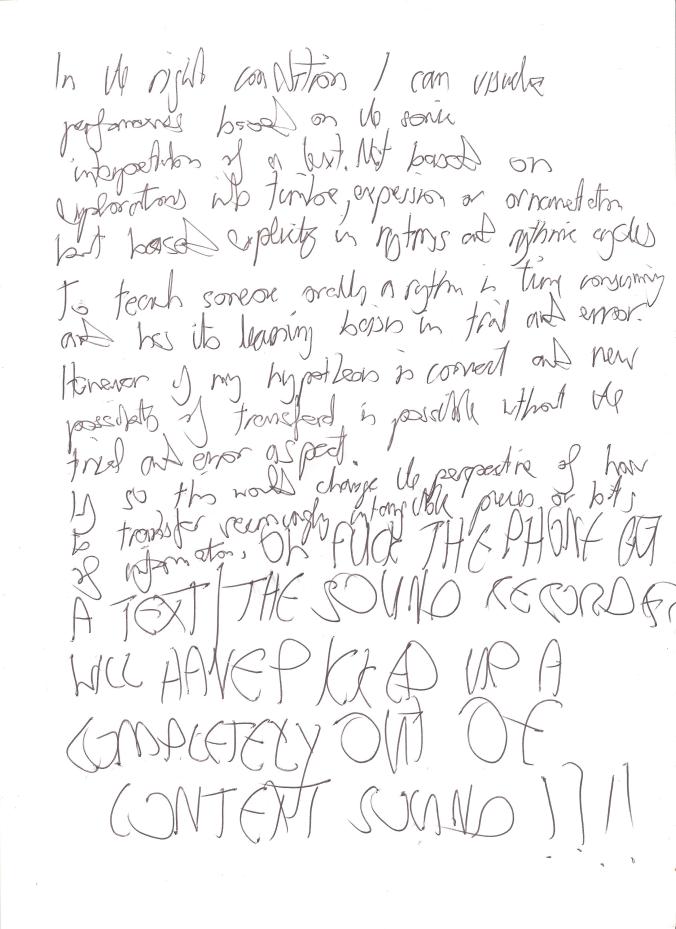 In the right condition I can visualize
performances based on the sonic
interpretation of a text. Not based on
explorations into timbre, expression or ornamentation
but based explicitly in rytms and rythmic cycles
To teach someone orally a rythm is time consuming
and has its learning basis in trial and error.
However if my hypothesis is correct and new
possibility of transferd is possible without the
trial and error aspect.
If so this would change the perspective of how
to transfer seemingly intangible pieces or bits
of information. OH FUCK THE PHONE GOT
A TEXT / THE SOUND RECORDER
WILL HAVE PICKED UP A
COMPLETELY OUT OF
CONTEXT SOUND !?!!